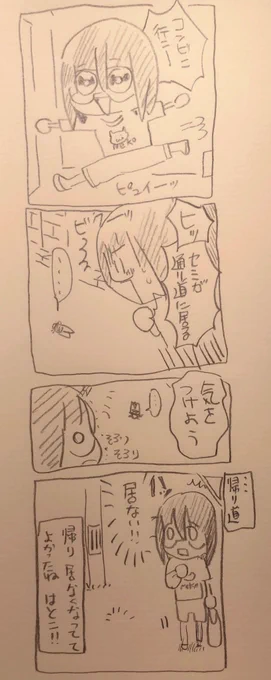 コンビニ
行こー
neko
ピュイーッ
ヒッ
セミが
通り道に居る
ビクッ
ビクッ
・・・・
気を
つけよう
・・・
そろり
そろり
・・・
帰り道
居ない!!
帰り 居なくなってて
よかったね はとこ!!